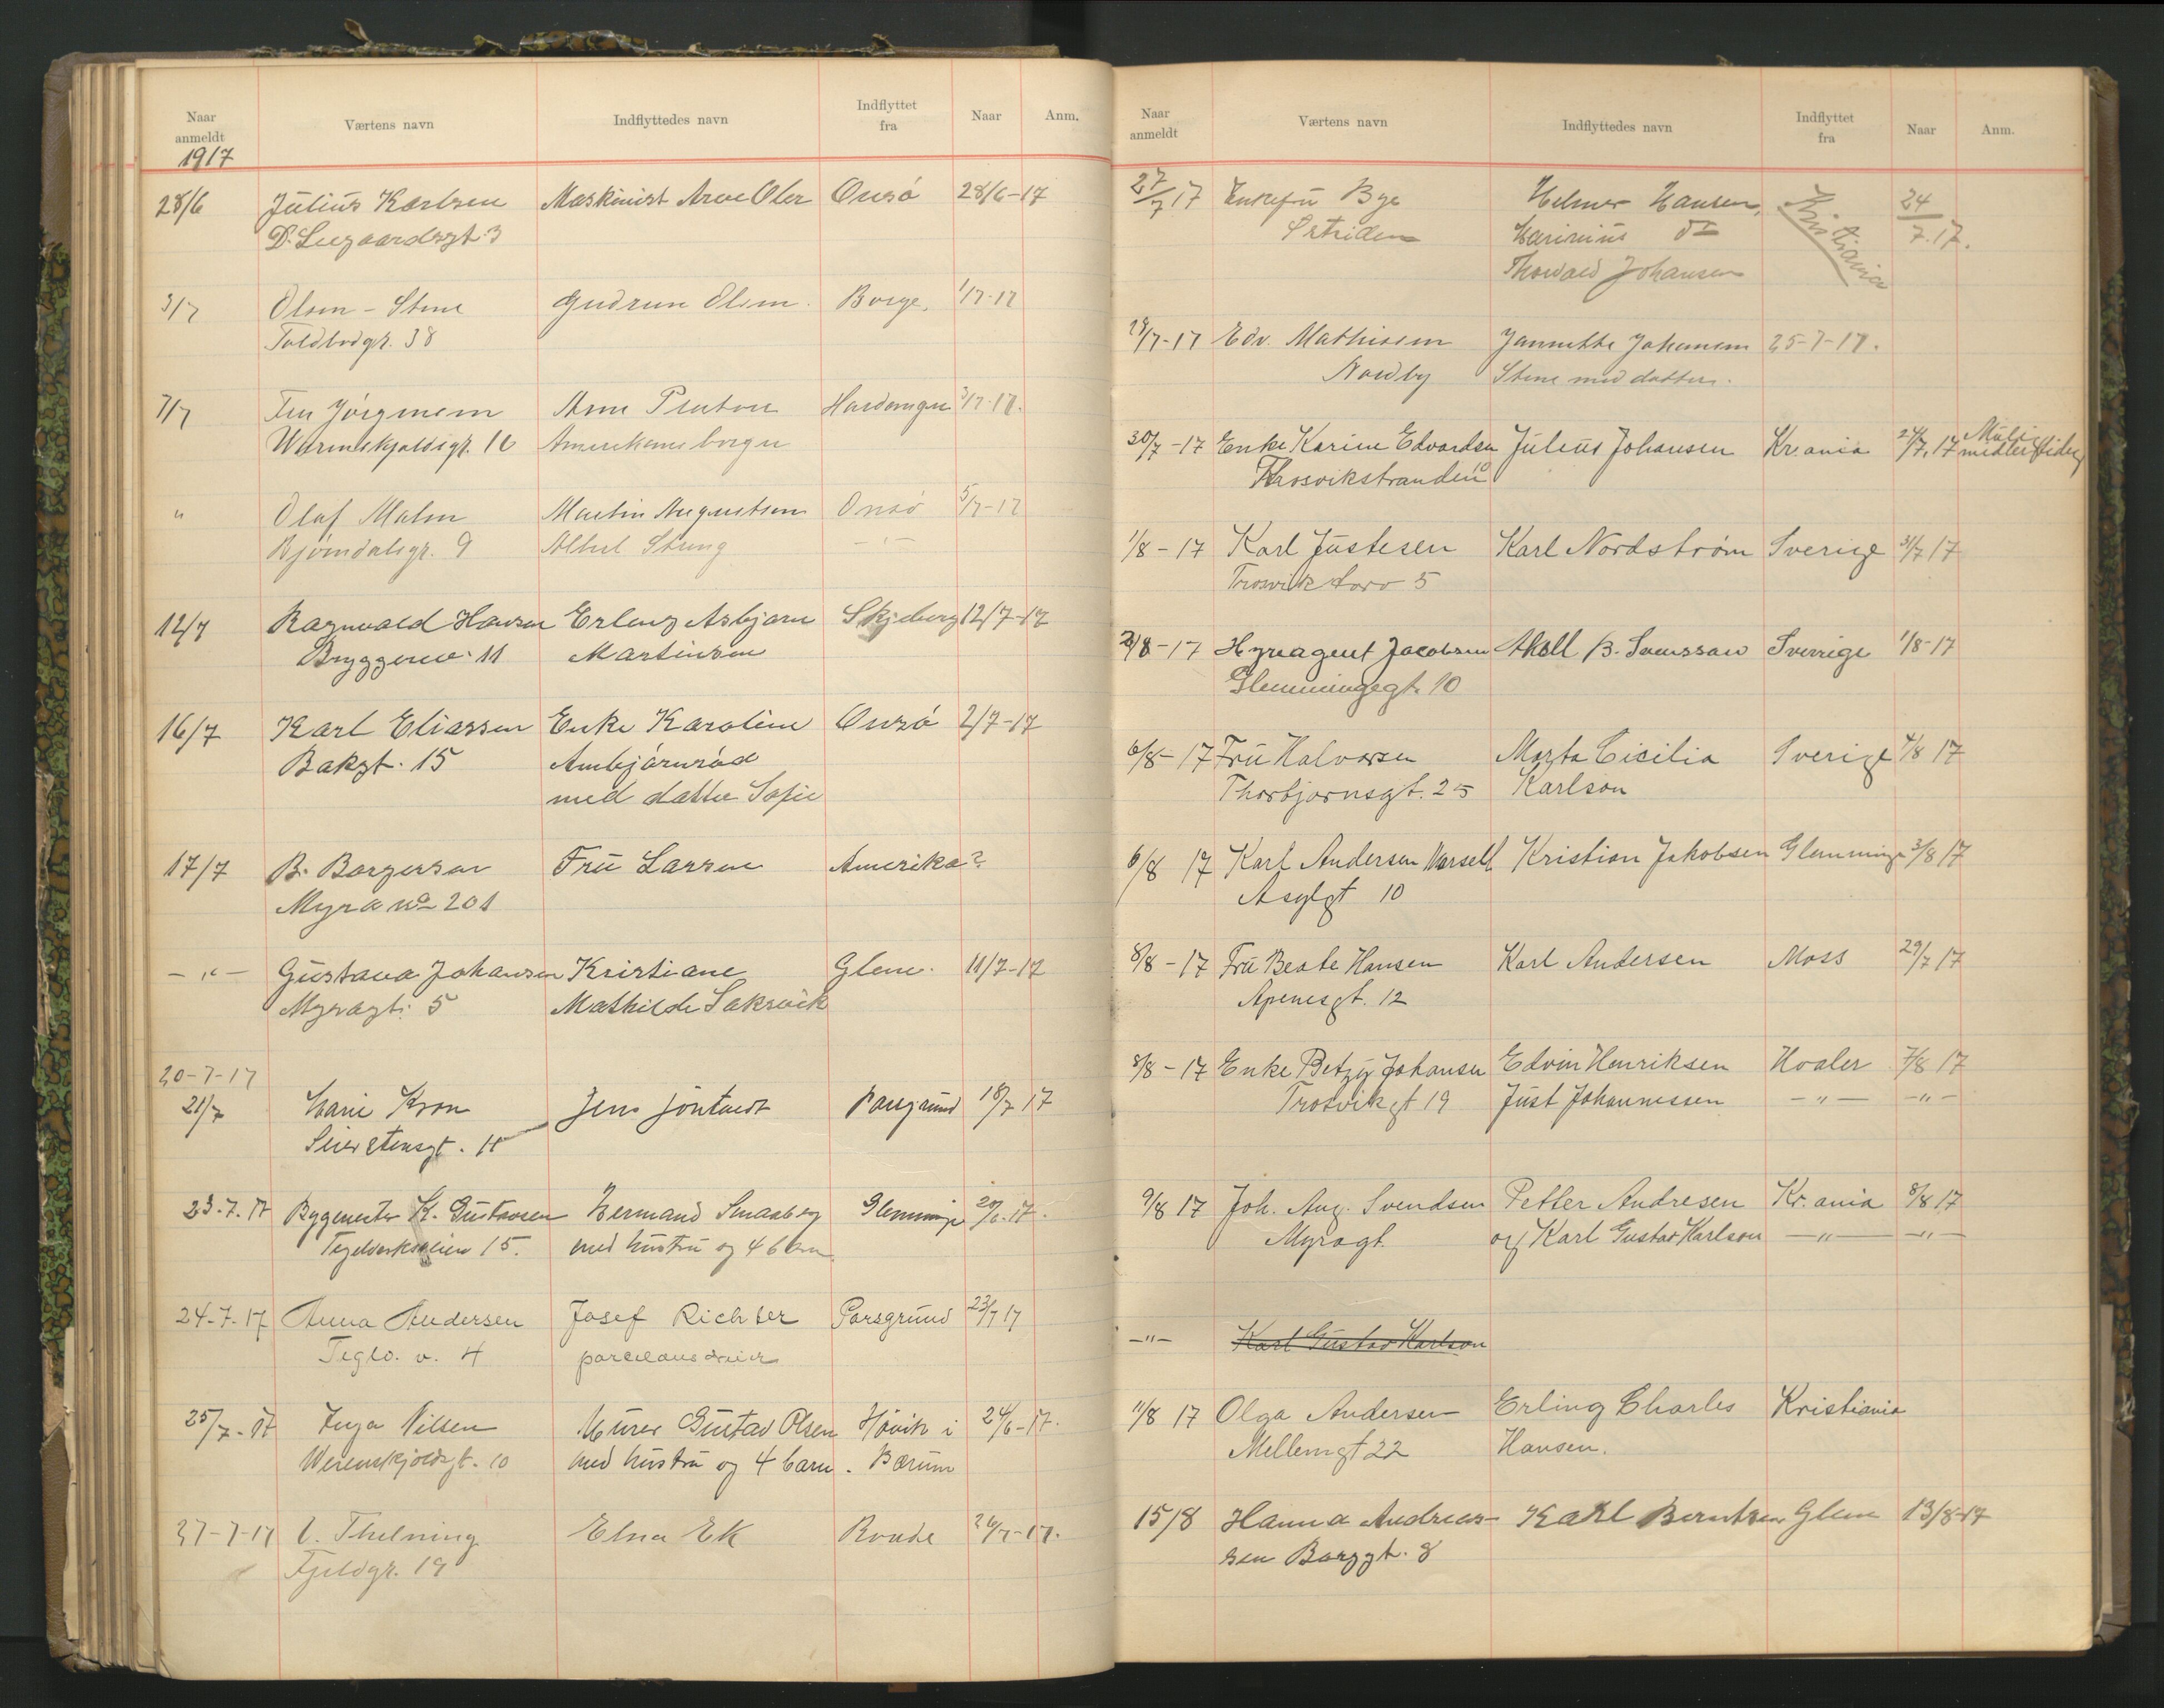 Naar anmeldt Værtens navn Indflyttedes navn Indflyttet fra Naar Anm.
1917
28/6 Julius Karlsen Maskinist Arve Oler Onsö 28/6-17
D. Seegaardsgt. 3
3/7 Olsen - Stene Gudrun Olsen. Borge. 1/7-17
Toldbodgt. 38
7/7 Fru Jörgensen Arne Hardanger 3/7-17.
Wærnskjoldsgt. 10 Amerikansborger
" Olaf Malm Martin Augustsen Onsö 5/7-17
Bjørndalsgt. 9 Albert -"-
12/7 Ragnvald Hansen Erling Asbjørn Skjeberg 12/7-17
Bryggeriv. 11 Martinsen
16/7 Karl Eliassen Enke Karoline Onsö 2/7-17
Bakgt. 15 Ambjörnröd
med datter Sofie
17/7 B. Borgersen Fru Larsen Amerika?
Myra no 201
-"- Gustava Johansen Kristiane Glem. 11/7-17
Myragt. 5 Mathilde Saksvik
20-7-17
21/7 Marie Kron Jens Porsgrund 18/7 17
Seierstensgt. 11
23-7-17 Bygmester K. Gustavsen Hermand Smaaberg Glemminge 20/6-17.
Teglverksveien 15. med hustru og 4 barn
24-7-17 Anna Andersen Josef Richter Porsgrund 23/7 17
Teglv. v. 4 porcelænsdreier
25/7-17 Inga Nilsen Murer Gustav Olsen Hövik i 24/6-17.
Werenskjoldsgt. 10 med hustru og 4 barn. Bærum
27-7-17 V. Thelning Elna Ek Raade 26/7-17.
Fjeldgt. 19
Naar anmeldt Værtens navn Indflyttedes navn Indflyttet fra Naar Anm.
27/7 17 Enkefru Bye Helmer Hansen, Kristiania 24/7.17.
Marinius do
Thorvald Johansen
28/7-17 Edv. Mathisen Jannette Johansen 25-7-17.
Nordby Stene med datter.
30/7-17 Enke Karine Edvardsen Julius Johansen Kr.ania 24/7.17 midlertidig
Throsvikstranden 10
1/8-17 Karl Justesen Karl Nordström Sverige 31/7 17
Trosvik torv 5
2/8-17 Hyreagent Jacobsen Akoll B. Svensson Sverrige 1/8-17
Glemmingegt. 10
6/8-17 Fru Halvorsen Marta Cicilia Sverige 4/8 17
Thorbjørnsgt. 25 Karlson
6/8 17 Karl Andersen Kristian Jakobsen Glemminge 3/8 17
Asylgt 10
8/8-17 Fru Beate Hansen Karl Andersen Moss 29/7 17
Apenesgt. 12
8/8-17 Enke Betzy Johansen Edvin Henriksen Hvaler 7/8 17
Trosvikgt 19 Just Johannessen -"- -"-
9/8 17 Joh. Aug. Svendsen Petter Andresen Kr.ania 8/8 17
Myragt. og Karl Gustav Karlson -"- -"-
-"- Karl Gustav Karlson
11/8 17 Olga Andersen Erling Charles Kristiania
Mellemgt 22 Hansen.
15/8 Hanna Andreas- Karl Berntsen Glem 13/8-17
sen Borggt. 8